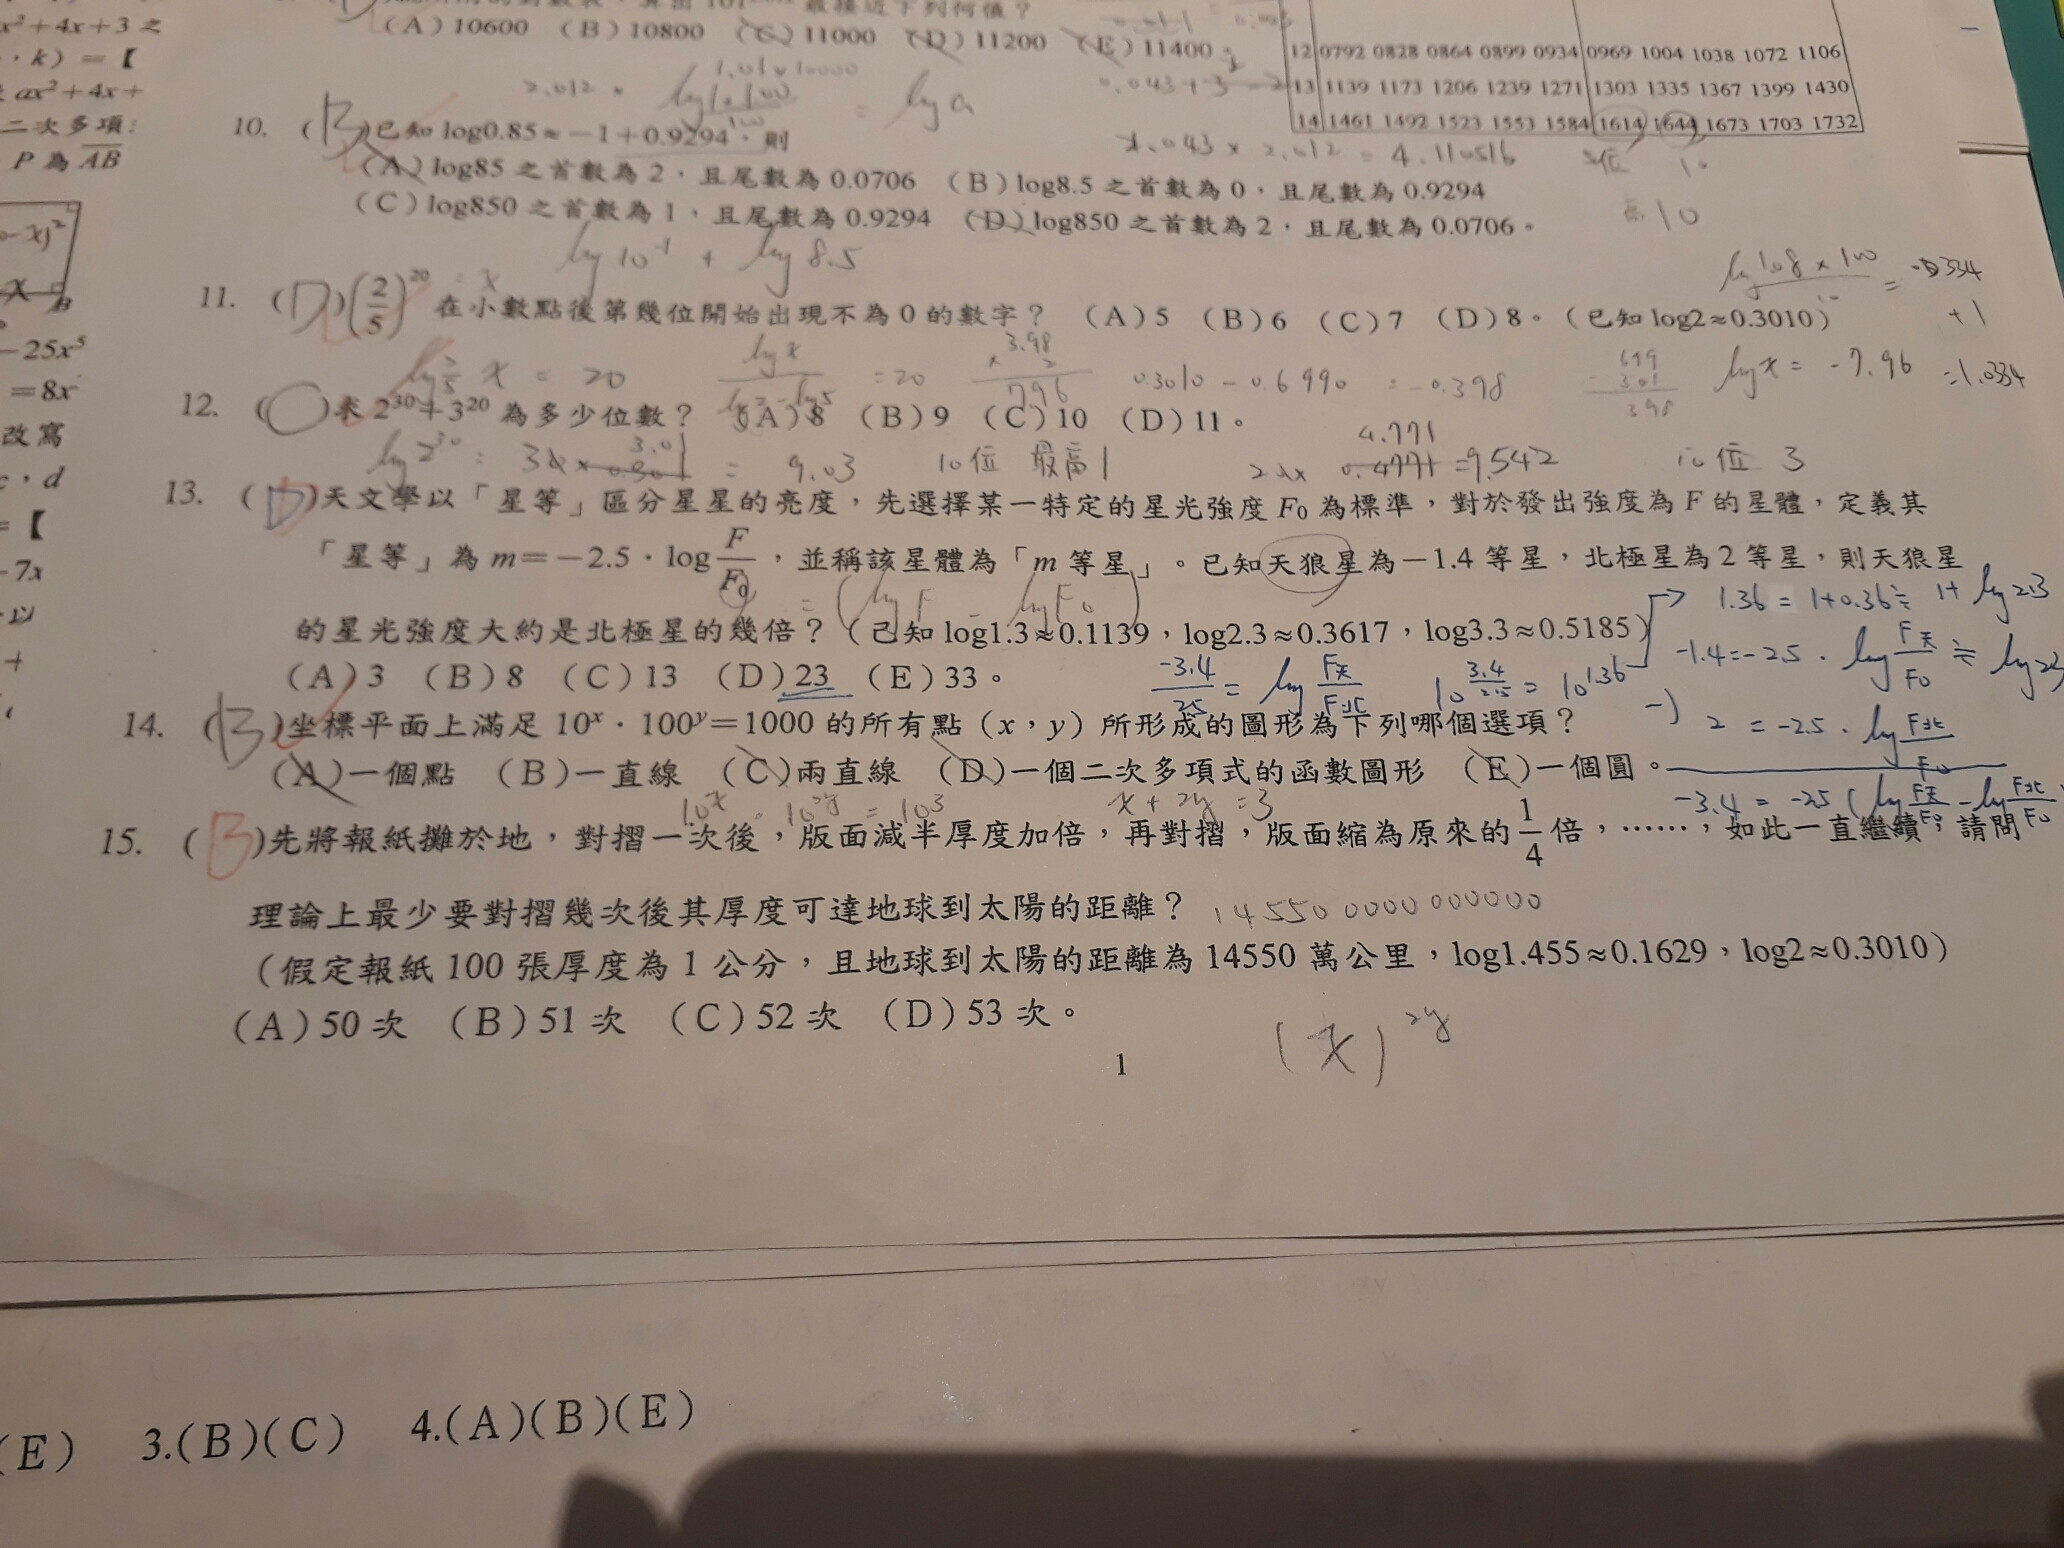 x²+4x+3 之
，k）＝【
ax²+4x+
二次多項
P 為 AB
－25x⁵
＝8x
改寫
c，d
＝【
－7x
(A) 10600 (B) 10800 (C) 11000 (D) 11200 (E) 11400。
12 0792 0828 0864 0899 0934 0969 1004 1038 1072 1106
13 1139 1173 1206 1239 1271 1303 1335 1367 1399 1430
14 1461 1492 1523 1553 1584 1614 1644 1673 1703 1732
1.01×10000
2.012 ×
= log a
0.043+3
10. (B)已知 log0.85≈－1＋0.9294，則
1.043 × 2.012 = 4.110516
(A) log85 之首數為 2，且尾數為 0.0706 (B) log8.5 之首數為 0，且尾數為 0.9294
(C) log850 之首數為 1，且尾數為 0.9294 (D) log850 之首數為 2，且尾數為 0.0706。
log 10⁻¹ + log 8.5
log 1.08 × 100 =
+1
11. (D)(2/5)²⁰ 在小數點後第幾位開始出現不為 0 的數字？ (A) 5 (B) 6 (C) 7 (D) 8。(已知 log2≈0.3010)
x = 20
log x
= 20
3.98
× 2
796
0.3010 - 0.6990 = -0.398
699
- 301
398
log x = -7.96
=1.0334
12. ( )求 2³⁰＋3²⁰ 為多少位數？ (A) 8 (B) 9 (C) 10 (D) 11。
log 2³⁰ = 3.01 = 9.03 10位 最高1
4.771
0.4771 =9.542 10位 3
13. (D)天文學以「星等」區分星星的亮度，先選擇某一特定的星光強度 F₀ 為標準，對於發出強度為 F 的星體，定義其
「星等」為 m＝－2.5．log F/F₀，並稱該星體為「m 等星」。已知天狼星為－1.4 等星，北極星為 2 等星，則天狼星
= (log F - log F₀)
→ 1.36 = 1+0.36≒ 1+ log 2.3
的星光強度大約是北極星的幾倍？（已知 log1.3≈0.1139，log2.3≈0.3617，log3.3≈0.5185）
-1.4=-2.5 · log F天/F₀
(A) 3 (B) 8 (C) 13 (D) 23 (E) 33。
-3.4/25 = log F天/F北 10^(3.4/2.5) = 10^1.36
-) 2 = -2.5 · log F北/F₀
14. (B)坐標平面上滿足 10ˣ．100ʸ＝1000 的所有點（x，y）所形成的圖形為下列哪個選項？
(A)一個點 (B)一直線 (C)兩直線 (D)一個二次多項式的函數圖形 (E)一個圓。
10ˣ · 10²ʸ = 10³ x + 2y = 3
-3.4 = -25 (log F天/F₀ - log F北/F₀)
15. (B)先將報紙攤於地，對摺一次後，版面減半厚度加倍，再對摺，版面縮為原來的 1/4 倍，……，如此一直繼續，請問
理論上最少要對摺幾次後其厚度可達地球到太陽的距離？
（假定報紙 100 張厚度為 1 公分，且地球到太陽的距離為 14550 萬公里，log1.455≈0.1629，log2≈0.3010）
(A) 50 次 (B) 51 次 (C) 52 次 (D) 53 次。
(x)²ʸ
1
(E) 3.(B)(C) 4.(A)(B)(E)